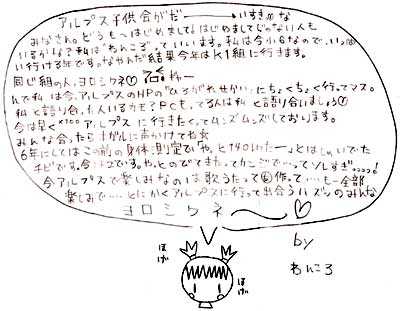 アルプス子供会がだーーいすきのな
みなさん。どうも〜はじめまして♪はじめましてじゃない人も
いるかな？私は"わんころ"っていいます。私は今小6なので、いっぱ
い行ける年です。なやんだ結果今年はK1組に行きます。
同じ組の人、ヨロシクネ♡
んで私は今、アルプスのHPの"ひろがれせかい"にちょくちょく行ってマス。
私と語り合人いるカモ？PCもってる人は私と語り合いましょう
今は早く×100アルプスに行きたくってムズムズしております。
みんな会ったらキガルに声かけてね☆
6年にしてはこの前の身体測定で「やっと140いたー」とはしゃいでた
チビです。今はコです。やっとのびてきたってかんじで…ってソレすぎ…!
今アルプスで楽しみなのは歌うたって作って……もー全部
楽しみで……とにかくアルプスに行って出会うハズのみんな
ヨロシクネ〜〜♡
ほげ
ほげ
by
わんころ